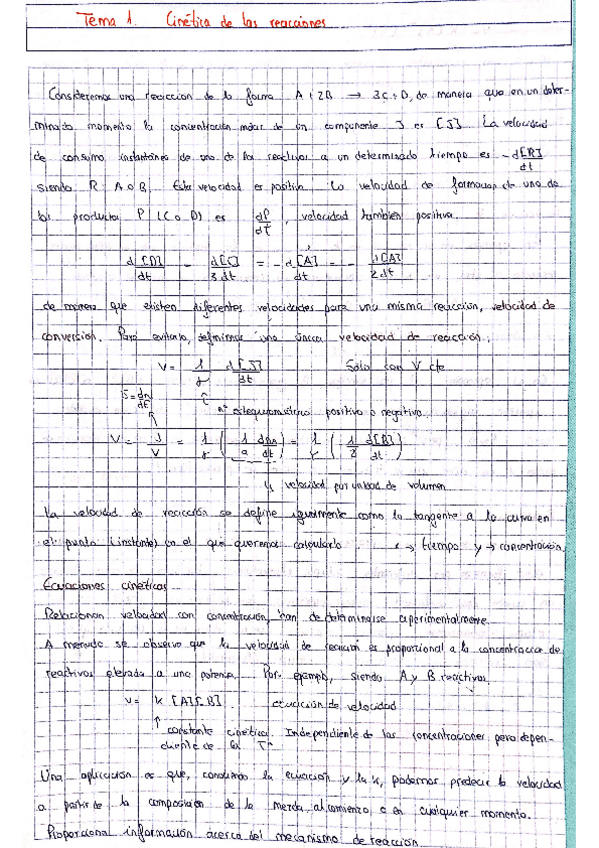 Tema 1. Cinética de las reacciones
Consideremos una reacción de la forma A + 2B → 3C + D, de manera que en un deter-
minado momento la concentración molar de un componente J es [J]. La velocidad
de consumo instantánea de uno de los reactivos a un determinado tiempo es - d[R]/dt
siendo R: A o B. Esta velocidad es positiva. La velocidad de formación de uno de
los productos P (C o D) es dP/dt, velocidad también positiva.
d[D]/dt = d[C]/3dt = - d[A]/dt = - d[A]/2dt
de manera que existen diferentes velocidades para una misma reacción, velocidad de
conversión. Para evitarlo, definimos una única velocidad de reacción.
V = 1/γ d[J]/dt Sólo con V cte
nº estequiométrico positivo o negativo.
velocidad por unidad de volumen
La velocidad de reacción se define igualmente como la tangente a la curva en
el punto (instante) en el que queremos calcularlo. x → tiempo y → concentración
Ecuaciones cinéticas
Relacionan velocidad con concentración, han de determinarse experimentalmente.
A menudo se observa que la velocidad de reacción es proporcional a la concentración de
reactivos elevada a una potencia. Por ejemplo, siendo A y B reactivos.
v = k [A][B] ecuación de velocidad
↑ constante cinética. Independiente de las concentraciones pero depen-
diente de la Tª
Una aplicación es que, conociendo la ecuación y la k, podemos predecir la velocidad
a partir de la composición de la mezcla, al comienzo o en cualquier momento.
Proporcional información acerca del mecanismo de reacción